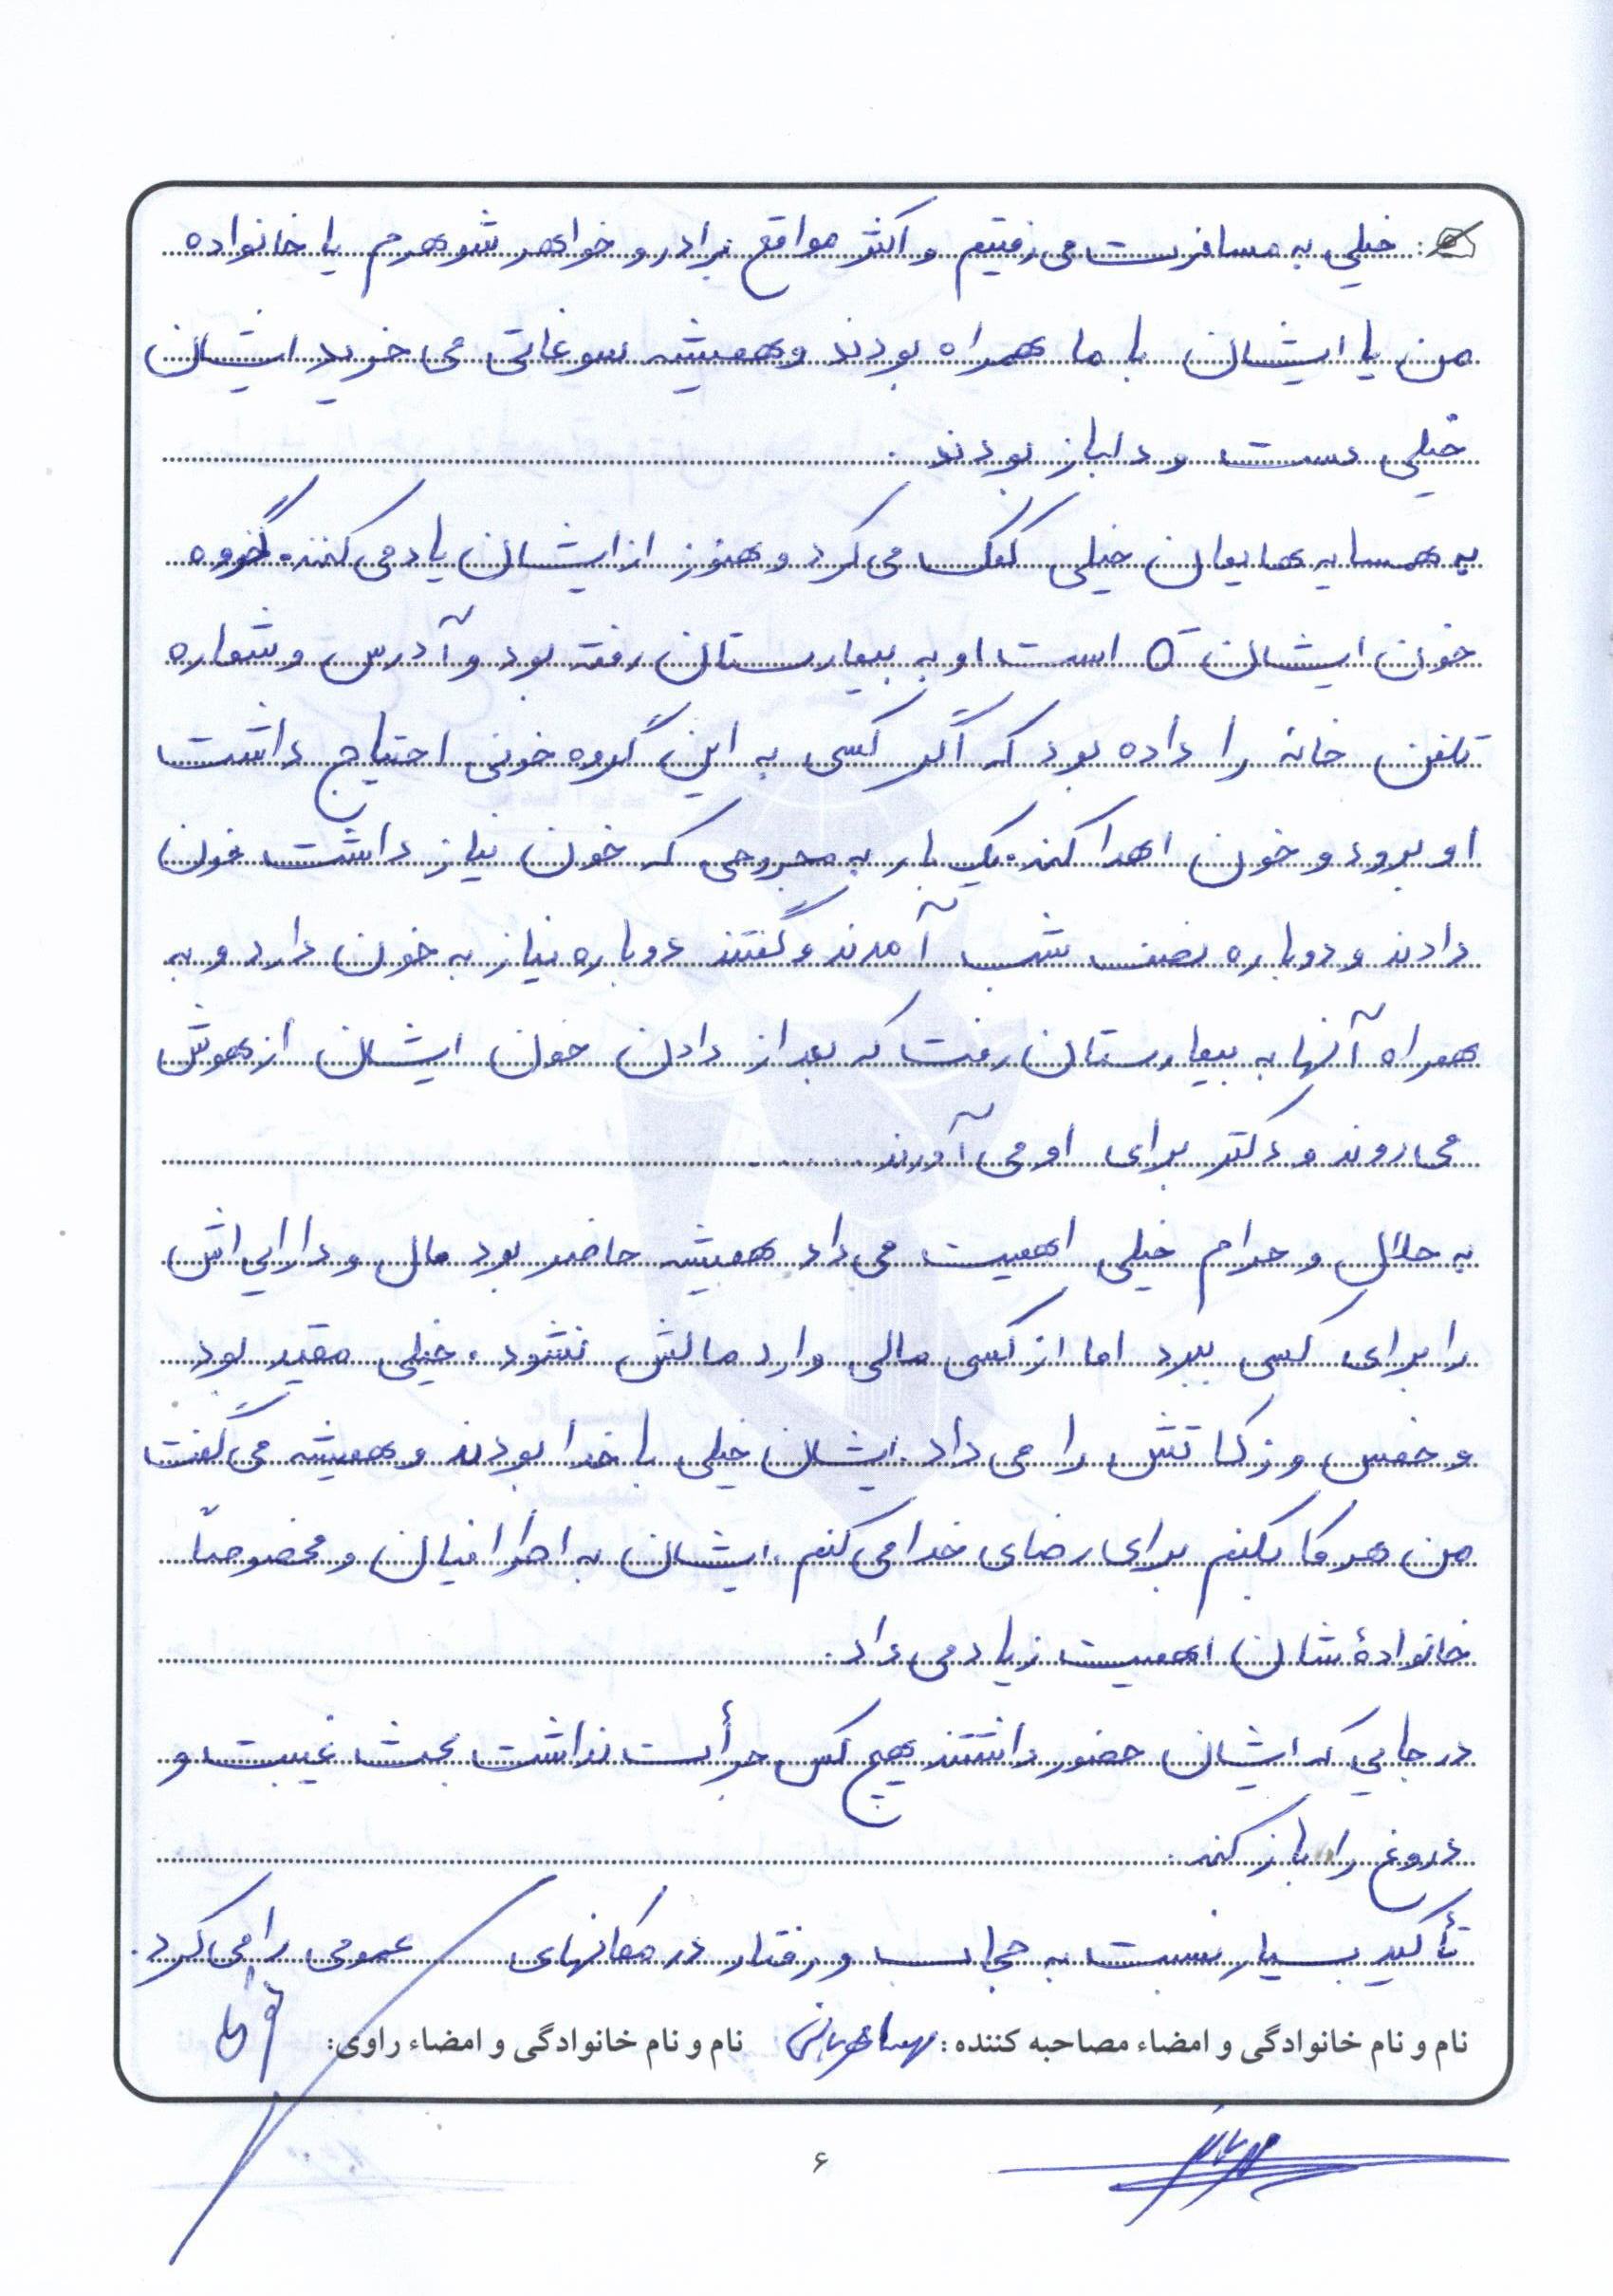 خیلی به مسافرت می رفتیم و اکثر مواقع برادر و خواهر شوهرم یا خانواده
من یا ایشان با ما همراه بودند و همیشه سوغاتی می خرید ایشان
خیلی دست و دلباز بودند .
به همسایه هایمان خیلی کمک می کرد و هنوز از ایشان یاد می کنند. گروه
خون ایشان O⁻ است او به بیمارستان رفته بود و آدرس و شماره
تلفن خانه را داده بود که اگر کسی به این گروه خونی احتیاج داشت
او برود و خون اهدا کند. یک بار به مجروحی که خون نیاز داشت خون
دادند و دوباره نصف شب آمدند و گفتند دوباره نیاز به خون دارد و به
همراه آنها به بیمارستان رفت که بعد از دادن خون ایشان از هوش
می روند و دکتر برای او می آورند.
به حلال و حرام خیلی اهمیت می داد همیشه حاضر بود مال و دارایی اش
را برای کسی ببرد اما از کسی مالی وارد مالش نشود . خیلی مقید بود
و خمس و زکاتش را می داد . ایشان خیلی با خدا بودند و همیشه می گفت
من هر کا بکنم برای رضای خدا می کنم . ایشان به اطرافیان و مخصوصاً
خانوادهٔ شان اهمیت زیاد می داد .
در جایی که ایشان حضور داشتند هیچ کس جرأت نداشت بحث غیبت و
دروغ را باز کند .
تأکید بسیار نسبت به حجاب و رفتار در مکانهای عمومی را می کرد .
نام و نام خانوادگی و امضاء مصاحبه کننده : نام و نام خانوادگی و امضاء راوی:
۶